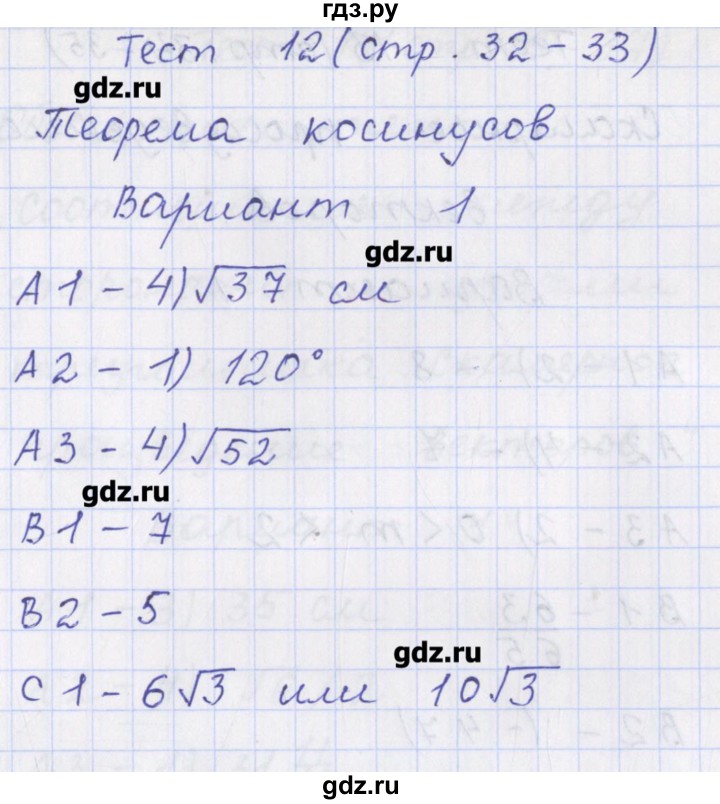 гдз.ру
Тест 12 (стр. 32 – 33)
gdz.ru
Теорема косинусов
Вариант 1
gdz.ru
А 1 – 4) √37 см
А 2 – 1) 120°
А 3 – 4) √52
gdz.ru
В 1 – 7
В 2 – 5
gdz.ru
С 1 – 6√3 или 10√3
gdz.ru